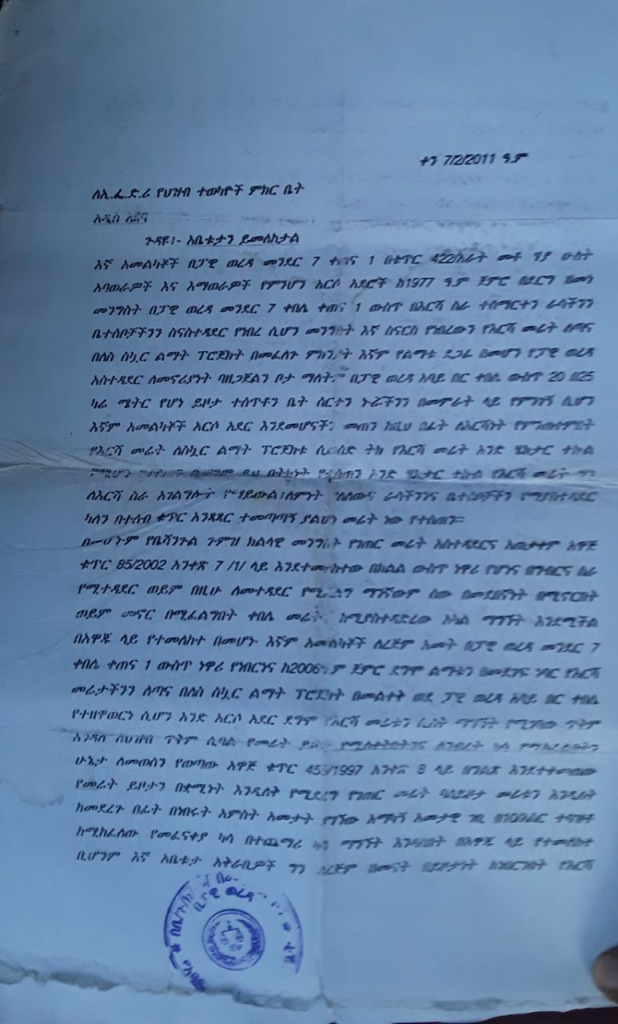 ቀን 7/2/2011 ዓ.ም
ለኢ.ፌ.ድ.ሪ የህዝብ ተወካዮች ምክር ቤት
አዲስ አበባ
ጉዳዩ፡- አቤቱታን ይመለከታል
እኛ አመልካቾች በፓዊ ወረዳ መንደር 7 ቀጠና 1 በቁጥር 422/አራት መቶ ሃያ ሁለት
አባወራዎች እና እማወራዎች የምንሆን አርሶ አደሮች ከ1977 ዓ.ም ጀምሮ በደርግ ዘመነ
መንግስት በፓዊ ወረዳ መንደር 7 ቀበሌ ቀጠና 1 ውስጥ በእርሻ ስራ ተሰማርተን ራሳችንን
ቤተሰቦቻችንን ስናስተዳደር የነበረ ሲሆን መንግስት እኛ ስናርስ የነበረውን የእርሻ መሬት ለጣና
በለስ ስኳር ልማት ፕሮጀክት በመፈለጉ ምክንያት እኛም የልማቱ ደጋፊ በመሆን የፓዊ ወረዳ
አስተዳደር ለመኖሪያነት ባዘጋጀልን ቦታ ማለትም በፓዊ ወረዳ አባይ በር ቀበሌ ውስጥ 20 በ25
ካሬ ሜትር የሆነ ይዞታ ተሰጥቶን ቤት ሰርተን ኑሯችንን በመምራት ላይ የምንገኝ ሲሆን
እኛም አመልካቾች አርሶ አደር እንደመሆናችን መጠን ከዚህ በፊት ለእርሻነት የምንጠቀምበት
የእርሻ መሬት ለስኳር ልማት ፕሮጀክቱ ሲወሰድ ትክ የእርሻ መሬት አንድ ሄክታር ተኩል
በትክነት የተሰጠን አንድ ሄክታር ተኩል የእርሻ መሬት ግን
ለእርሻ ስራ አገልግሎት ራሳችንንና ቤተሰቦቻችን የማያስተዳድር
ካለን በተሰብ ቁጥር አንጻር ተመጣጣኝ ያልሆነ መሬት ነው የተሰጠን።
በመሆኑም የቤሻንጉል ጉምዝ ክልላዊ መንግስት የገጠር መሬት አስተዳደርና አጠቃቀም አዋጅ
ቁጥር 85/2002 አንቀጽ 7 /1/ ላይ እንደተመለከተው በክልሉ ውስጥ ነዋሪ የሆነና በግብርና ስራ
የሚተዳደር ወይም በዚሁ ለመተዳደር የሚፈልግ ማንኛውም ሰው በመደበኛነት በሚኖርበት
ወይም መኖር በሚፈልግበት ቀበሌ መሬት ከሚያስተዳድረው አካል ማግኘት እንደሚችል
በአዋጁ ላይ የተመለከተ በመሆኑ እኛም አመልካቾች ለረጅም አመት በፓዊ ወረዳ መንደር 7
ቀበሌ ቀጠና 1 ውስጥ ነዋሪ የነበርንና ከ2006 ዓ.ም ጀምሮ ደግሞ ልማቱን በመደገፍ የእርሻ
መሬታችንን ለጣና በለስ ስኳር ልማት ፕሮጀክት በመልቀቅ ወደ ፓዊ ወረዳ አባይ በር ቀበሌ
የተዘዋወርን ሲሆን አንድ አርሶ አደር ደግሞ የእርሻ መሬቱን ሊያጣ ማግኘት የሚገባው ጥቅም
እንዳለ ለህዝብ ጥቅም ሲባል የመሬት
ሁኔታ ለመወሰን የወጣው አዋጅ ቁጥር 455/1997 አንቀጽ 8 ላይ በግልጽ እንደተቀመጠው
የመሬት ይዞታን በቋሚነት እንዲለቅ የሚደረግ የገጠር መሬት ባለይዞታ መሬቱን እንዲለቅ
ከመደረጉ በፊት በነበሩት አምስት አመታት የገኘው አማካኝ አመታዊ ገቢ በአስር ተባዝቶ
ከሚከፈለው የመፈናቀያ ካሳ በተጨማሪ ካሳ ማግኘት እንዳለበት በአዋጁ ላይ የተመለከተ
ቢሆንም እኛ አቤቱታ አቅራቢዎች ግን ለረጅም ዘመናት የእርሻ